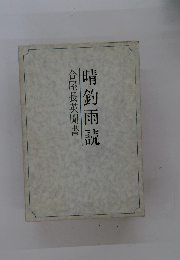 晴釣雨読
合屋長英聞書